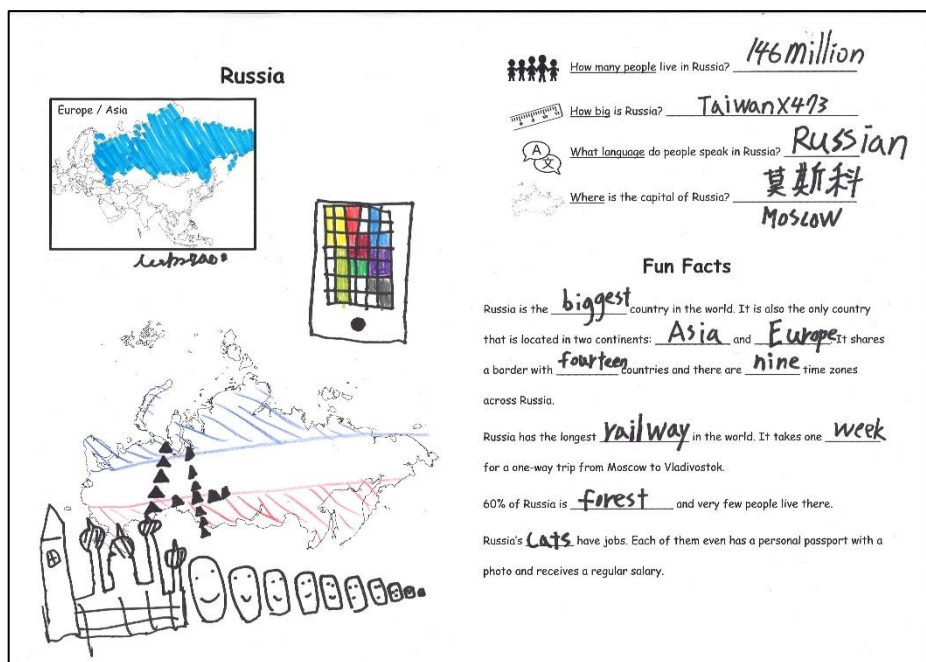 Russia
Europe / Asia
How many people live in Russia? 146 Million
How big is Russia? TaiwanX473
A
文
What language do people speak in Russia? Russian
Where is the capital of Russia? 莫斯科
Moscow
Fun Facts
Russia is the biggest country in the world. It is also the only country
that is located in two continents: Asia and Europe. It shares
a border with fourteen countries and there are nine time zones
across Russia.
Russia has the longest railway in the world. It takes one week
for a one-way trip from Moscow to Vladivostok.
60% of Russia is forest and very few people live there.
Russia's cats have jobs. Each of them even has a personal passport with a
photo and receives a regular salary.